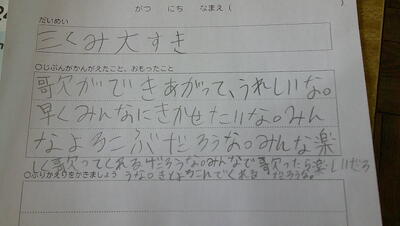 がつ にち なまえ(
だいめい
三くみ大すき
○じぶんがかんがえたこと、おもったこと
歌ができあがって、うれしいな。
早くみんなにきかせたいな。みん
なよろこぶだろうな。みんな楽
しく歌ってくれるだろうな。みんなで歌ったら楽しいだろ
うな。きっとよろこんでくれるだろうな。
○ふりかえりをかきましょう